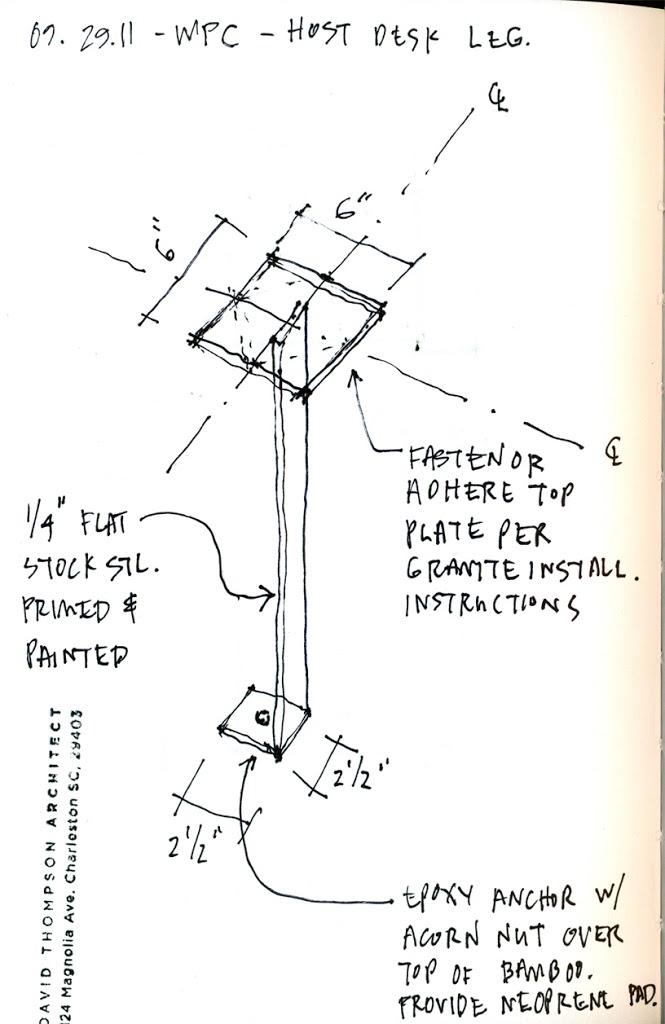 07.29.11 - WPC - HOST DESK LEG.
℄
6"
6"
℄
FASTEN OR
ADHERE TOP
PLATE PER
GRANITE INSTALL.
INSTRUCTIONS
1/4" FLAT
STOCK STL.
PRIMED &
PAINTED
2 1/2"
2 1/2"
EPOXY ANCHOR W/
ACORN NUT OVER
TOP OF BAMBOO.
PROVIDE NEOPRENE PAD.
DAVID THOMPSON ARCHITECT
124 Magnolia Ave. Charleston SC, 29403